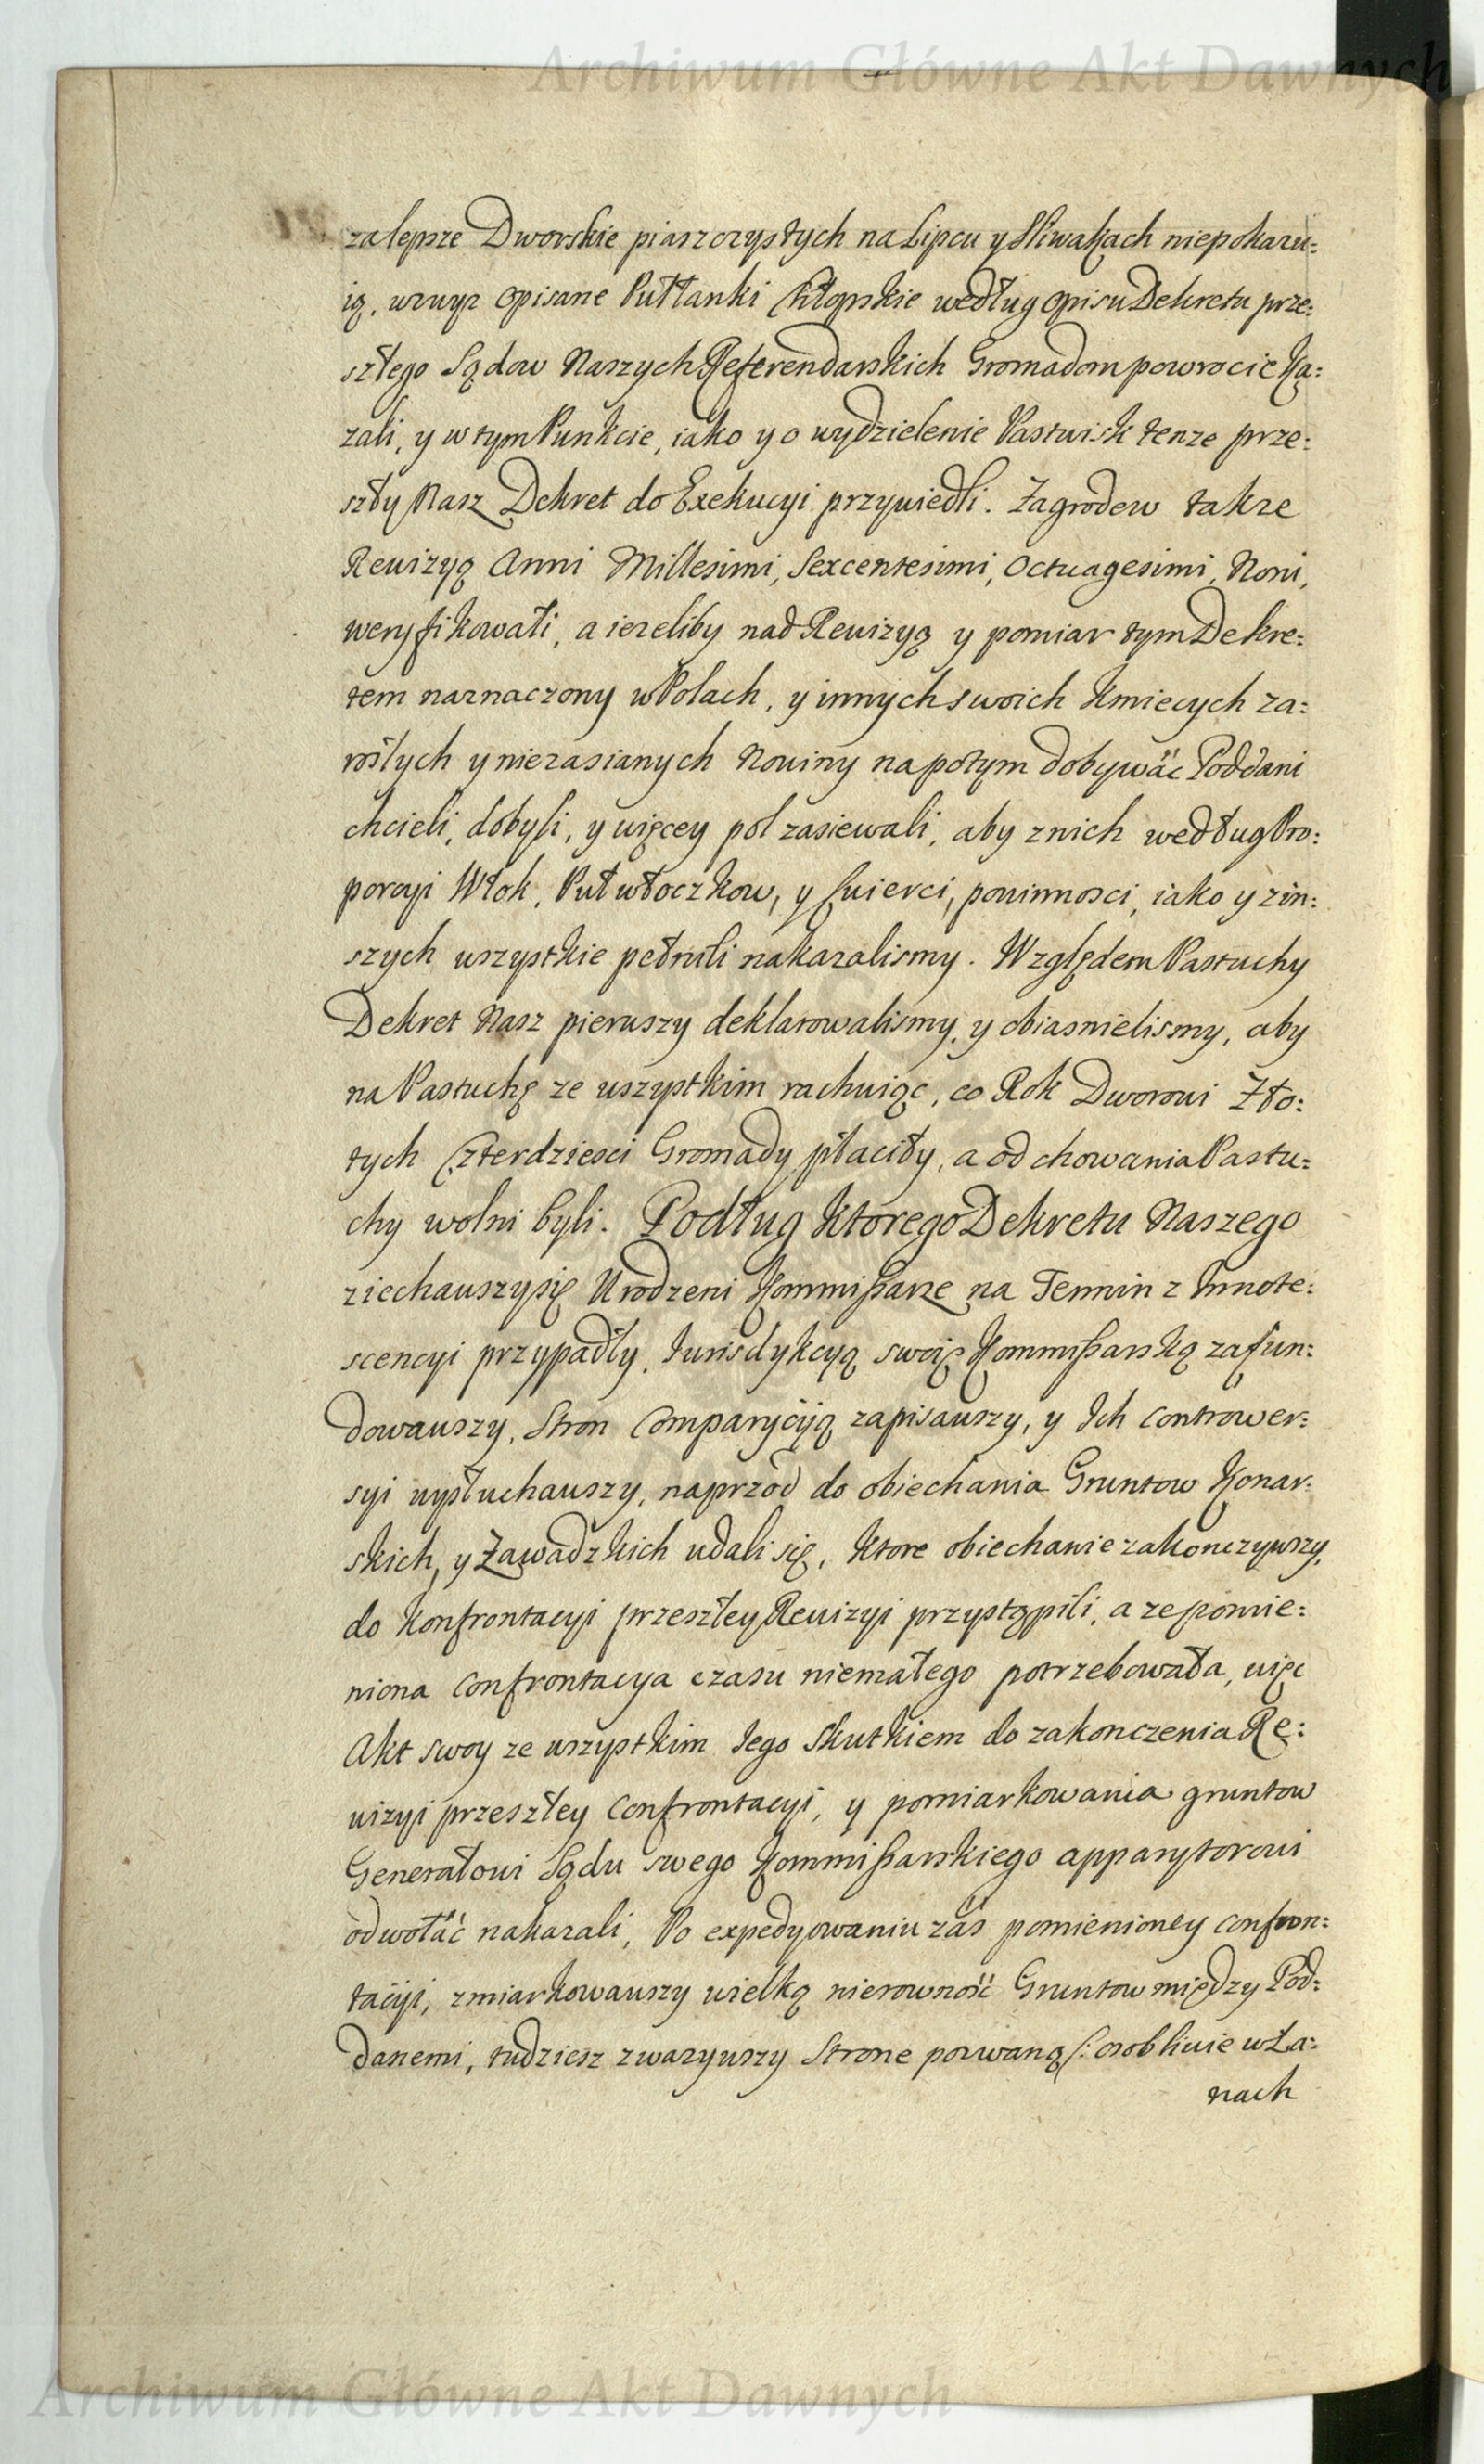 Archiwum Główne Akt Dawnych
zalepsze Dworskie piaszczystych na Lipcu y Sliwakach niepokazu:
ią, wzwyż opisane Pułłanki Chłopskie według opisu Dekretu prze:
szłego Sądow Naszych Referendarskich Gromadom powrocić Ka:
zali, y w tym Punkcie, iako y o wydzielenie Pastwisk tenze prze:
szły Nasz Dekret do Exekucyi przywiedli. Zagrodew takze
Rewizyą Anni Millesimi, Sexcentesimi, Octuagesimi, Noni,
weryfikowali, a iezeliby nad Rewizyą y pomiar tym Dekre:
tem naznaczony w Polach, y innych swoich Kmiecych za:
rosłych y niezasianych Nowiny na potym dobywać Poddani
chcieli, dobyli, y więcey pol zasiewali, aby z nich według Pro:
porcyi Włok, Pułwłoczkow, y Cwierci, powinnosci, iako y z in:
szych wszystkie pełnili nakazalismy. Względem Pastuchy
Dekret Nasz pierwszy deklarowalismy, y obiasnielismy, aby
na Pastuchę ze wszystkim rachuiąc, co Rok Dworowi Zło:
tych Czterdziesci Gromady płaciły, a od chowania Pastu:
chy wolni byli. Podług ktorego Dekretu Naszego
ziechawszysię Urodzeni Kommißarze na Termin z Innote:
scencyi przypadły, Iurisdykcyą swoię Kommißarską zafun:
dowawszy, Stron Comparycyą zapisawszy, y Ich contrower:
syi wysłuchawszy, naprzod do obiechania Gruntow Konar:
skich, y Zawadzkich udali się, ktore obiechanie zakonczywszy,
do Konfrontacyi przeszłey Rewizyi przystąpili, a ze pomie:
niona confrontacya czasu niemałego potrzebowała, więc
Akt swoy ze wszystkim Jego Skutkiem do zakonczenia Re:
wizyi przeszłey Confrontacyi, y pomiarkowania gruntow
Generałowi Sądu swego Kommißarskiego apparytorowi
odwołać nakazali, Po expedyowaniu zaś pomienioney confron:
tacyi, zmiarkowawszy wielką nierowność Gruntow między Pod:
danemi, tudziesz zwazywszy Strone pozwaną /: osobliwie w Ła:
nach
Archiwum Główne Akt Dawnych